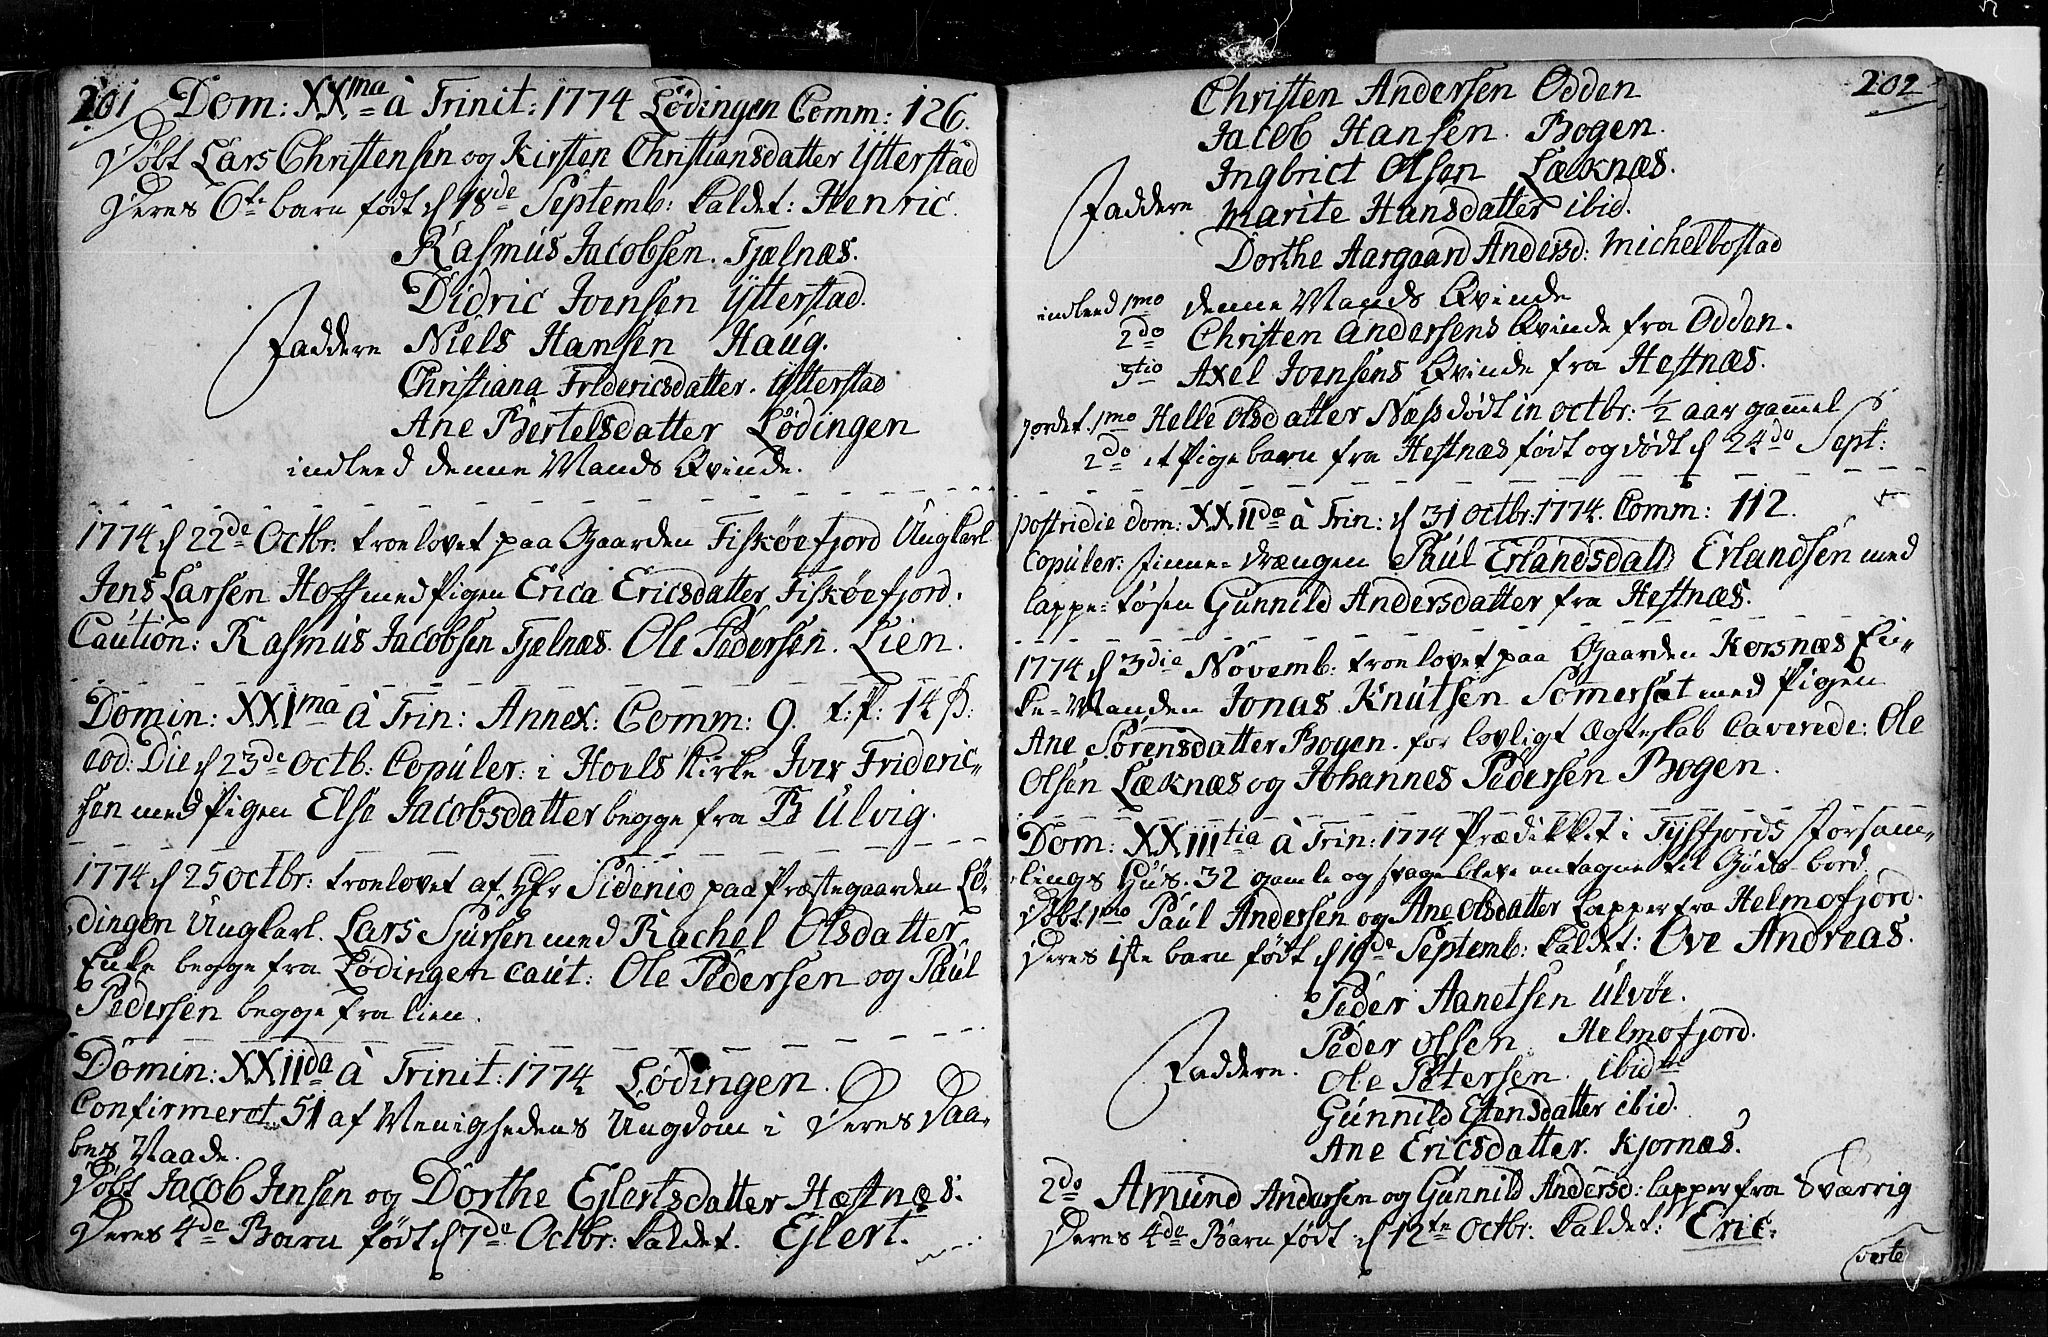 201 Dom: XXma à Trinit: 1774 Lødingen Comm: 126.
Døbt Lars Christensen og Kirsten Christiansdatter Ytterstad
Deres 6te barn født d 18de Septemb: kaldet: Henric.
Rasmus Jacobsen. Fjælnæs.
Didric Joensen Ytterstad.
Faddere Niels Hansen Haug.
Christiana Fridericsdatter. Ytterstad
Ane Bertelsdatter Lødingen
indleed denne Mands Qvinde.
1774 d 22de Octbr: troelovet paa Gaarden Fiskøefjord Ungkarl
Jens Larsen Hoff med Pigen Erica Ericsdatter Fiskøefjord.
Caution: Rasmus Jacobsen Fjelnæs. Ole Pedersen. Lien.
Domin: XXIma à Trin: Annex: Comm: 9. t: P: 14 ß:
eod: Die d 23de Octb: Copuler: i Hoels Kirke Iver Frideric-
sen med Pigen Else Jacobsdatter begge fra Ulvig.
1774 d 25 Octbr: troelovet af Hr Sidenio paa Præstegaarden Lø-
dingen Ungkarl. Lars Sjursen med Rachel Olsdatter
Enke begge fra Lødingen caut: Ole Pedersen og Paul
Pedersen begge fra Lien.
Domin: XXIIda à Trinit: 1774 Lødingen.
Confirmeret 51 af Menighedens Ungdom i Deres Daa-
bes Naade.
Døbt Jacob Jensen og Dorthe Ejlertsdatter Hæstnæs.
Deres 4de Barn født d 7de Octbr: kaldet. Ejlert.
202
Christen Andersen Odden
Jacob Hansen. Bogen.
Ingbrict Olsen Læknæs.
Faddere Marite Hansdatter ibid.
Dorthe Aargaard Andersd: Michelbostad
indleed 1mo denne Mands Qvinde
2do Christen Andersens Qvinde fra Odden.
3tio Axel Joensens Qvinde fra Hestnæs.
jordet. 1mo Helle Olsdatter Næss død in octbr: 1/2 aar gammel
2do et Pigebarn fra Hestnæs født og død d 24do Sept:
postridie dom: XXIIda à Trin: d 31 octbr: 1774. Comm: 112.
Copuler: Finne-drængen Paul Erlandsdatt Erlandsen med
lappe-tøsen Gunnild Andersdatter fra Hestnæs.
1774 d 3die Novemb: troelovet paa Gaarden Korsnæs En-
ke-Manden Jonas Knutsen Somerset med Pigen
Ane Sørensdatter Bogen. for lovligt Ægteskab Caverede: Ole
Olsen Læknæs og Johannes Pedersen Bogen.
Dom: XXIIItia à Trin: 1774 Prædikket i Tysfjords Forsam-
lings Hus. 32 gamle og svage bleve antagne til Guds bord.
Døbt 1mo Paul Andersen og Ane Olsdatter lapper fra Helmofjord.
Deres 1ste barn født d 19de Septemb: kaldet: Ove Andreas.
Peder Aanetsen Ulvøe.
Peder Olsen. Helmofjord.
Faddere. Ole Petersen. ibid
Gunnild Estensdatter ibid.
Ane Ericsdatter. Kjornæs.
2do Amund Andersen og Gunnild Andersd: lapper fra Sværrig
Deres 4de Barn født d 12te Octbr: kaldet: Eric.
verte